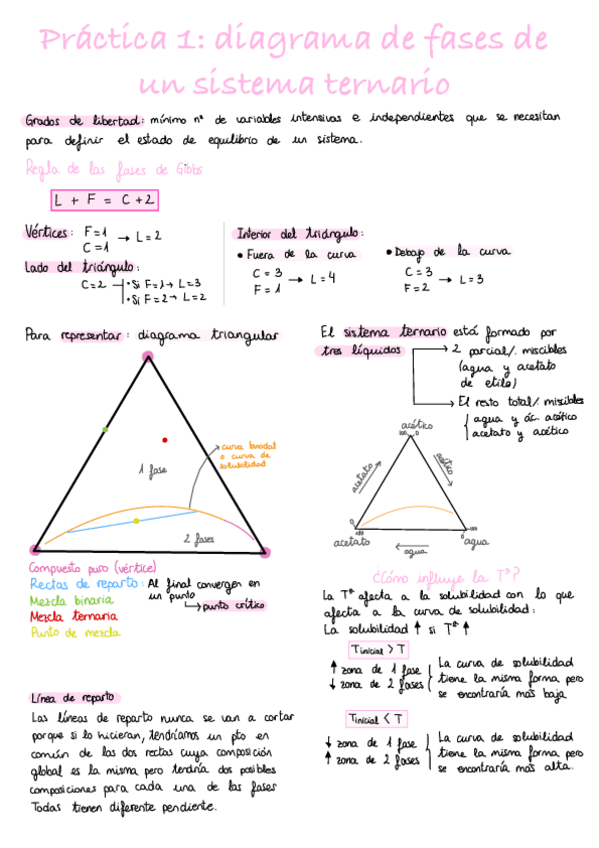 Práctica 1: diagrama de fases de
un sistema ternario
Grados de libertad: mínimo nº de variables intensivas e independientes que se necesitan
para definir el estado de equilibrio de un sistema.
Regla de las fases de Gibbs
L + F = C + 2
Vértices: F=1
C=1
→ L=2
Lado del triángulo:
C=2
• Si F=1 → L=3
• Si F=2 → L=2
Interior del triángulo:
• Fuera de la curva
C = 3
F = 1
→ L = 4
• Debajo de la curva
C = 3
F = 2
→ L = 3
Para representar: diagrama triangular
1 fase
curva binodal
o curva de
solubilidad
2 fases
Compuesto puro (vértice)
Rectas de reparto: Al final convergen en
un punto
→ punto crítico
Mezcla binaria
Mezcla ternaria
Punto de mezcla
Línea de reparto
Las líneas de reparto nunca se van a cortar
porque si lo hicieran, tendríamos un pto en
común de las dos rectas cuya composición
global es la misma pero tendría dos posibles
composiciones para cada una de las fases
Todas tienen diferente pendiente.
El sistema ternario está formado por
tres líquidos
→ 2 parcial/. miscibles
(agua y acetato
de etilo)
→ El resto total/. miscibles
agua y ác. acético
acetato y acético
acético
100 0
acetato
acético
0
100
0
100
acetato
agua
agua
¿Cómo influye la Tª?
La Tª afecta a la solubilidad con lo que
afecta a la curva de solubilidad:
La solubilidad ↑ si Tª ↑
Tinicial > T
↑ zona de 1 fase
↓ zona de 2 fases
La curva de solubilidad
tiene la misma forma pero
se encontraría más baja
Tinicial < T
↓ zona de 1 fase
↑ zona de 2 fases
La curva de solubilidad
tiene la misma forma pero
se encontraría más alta.